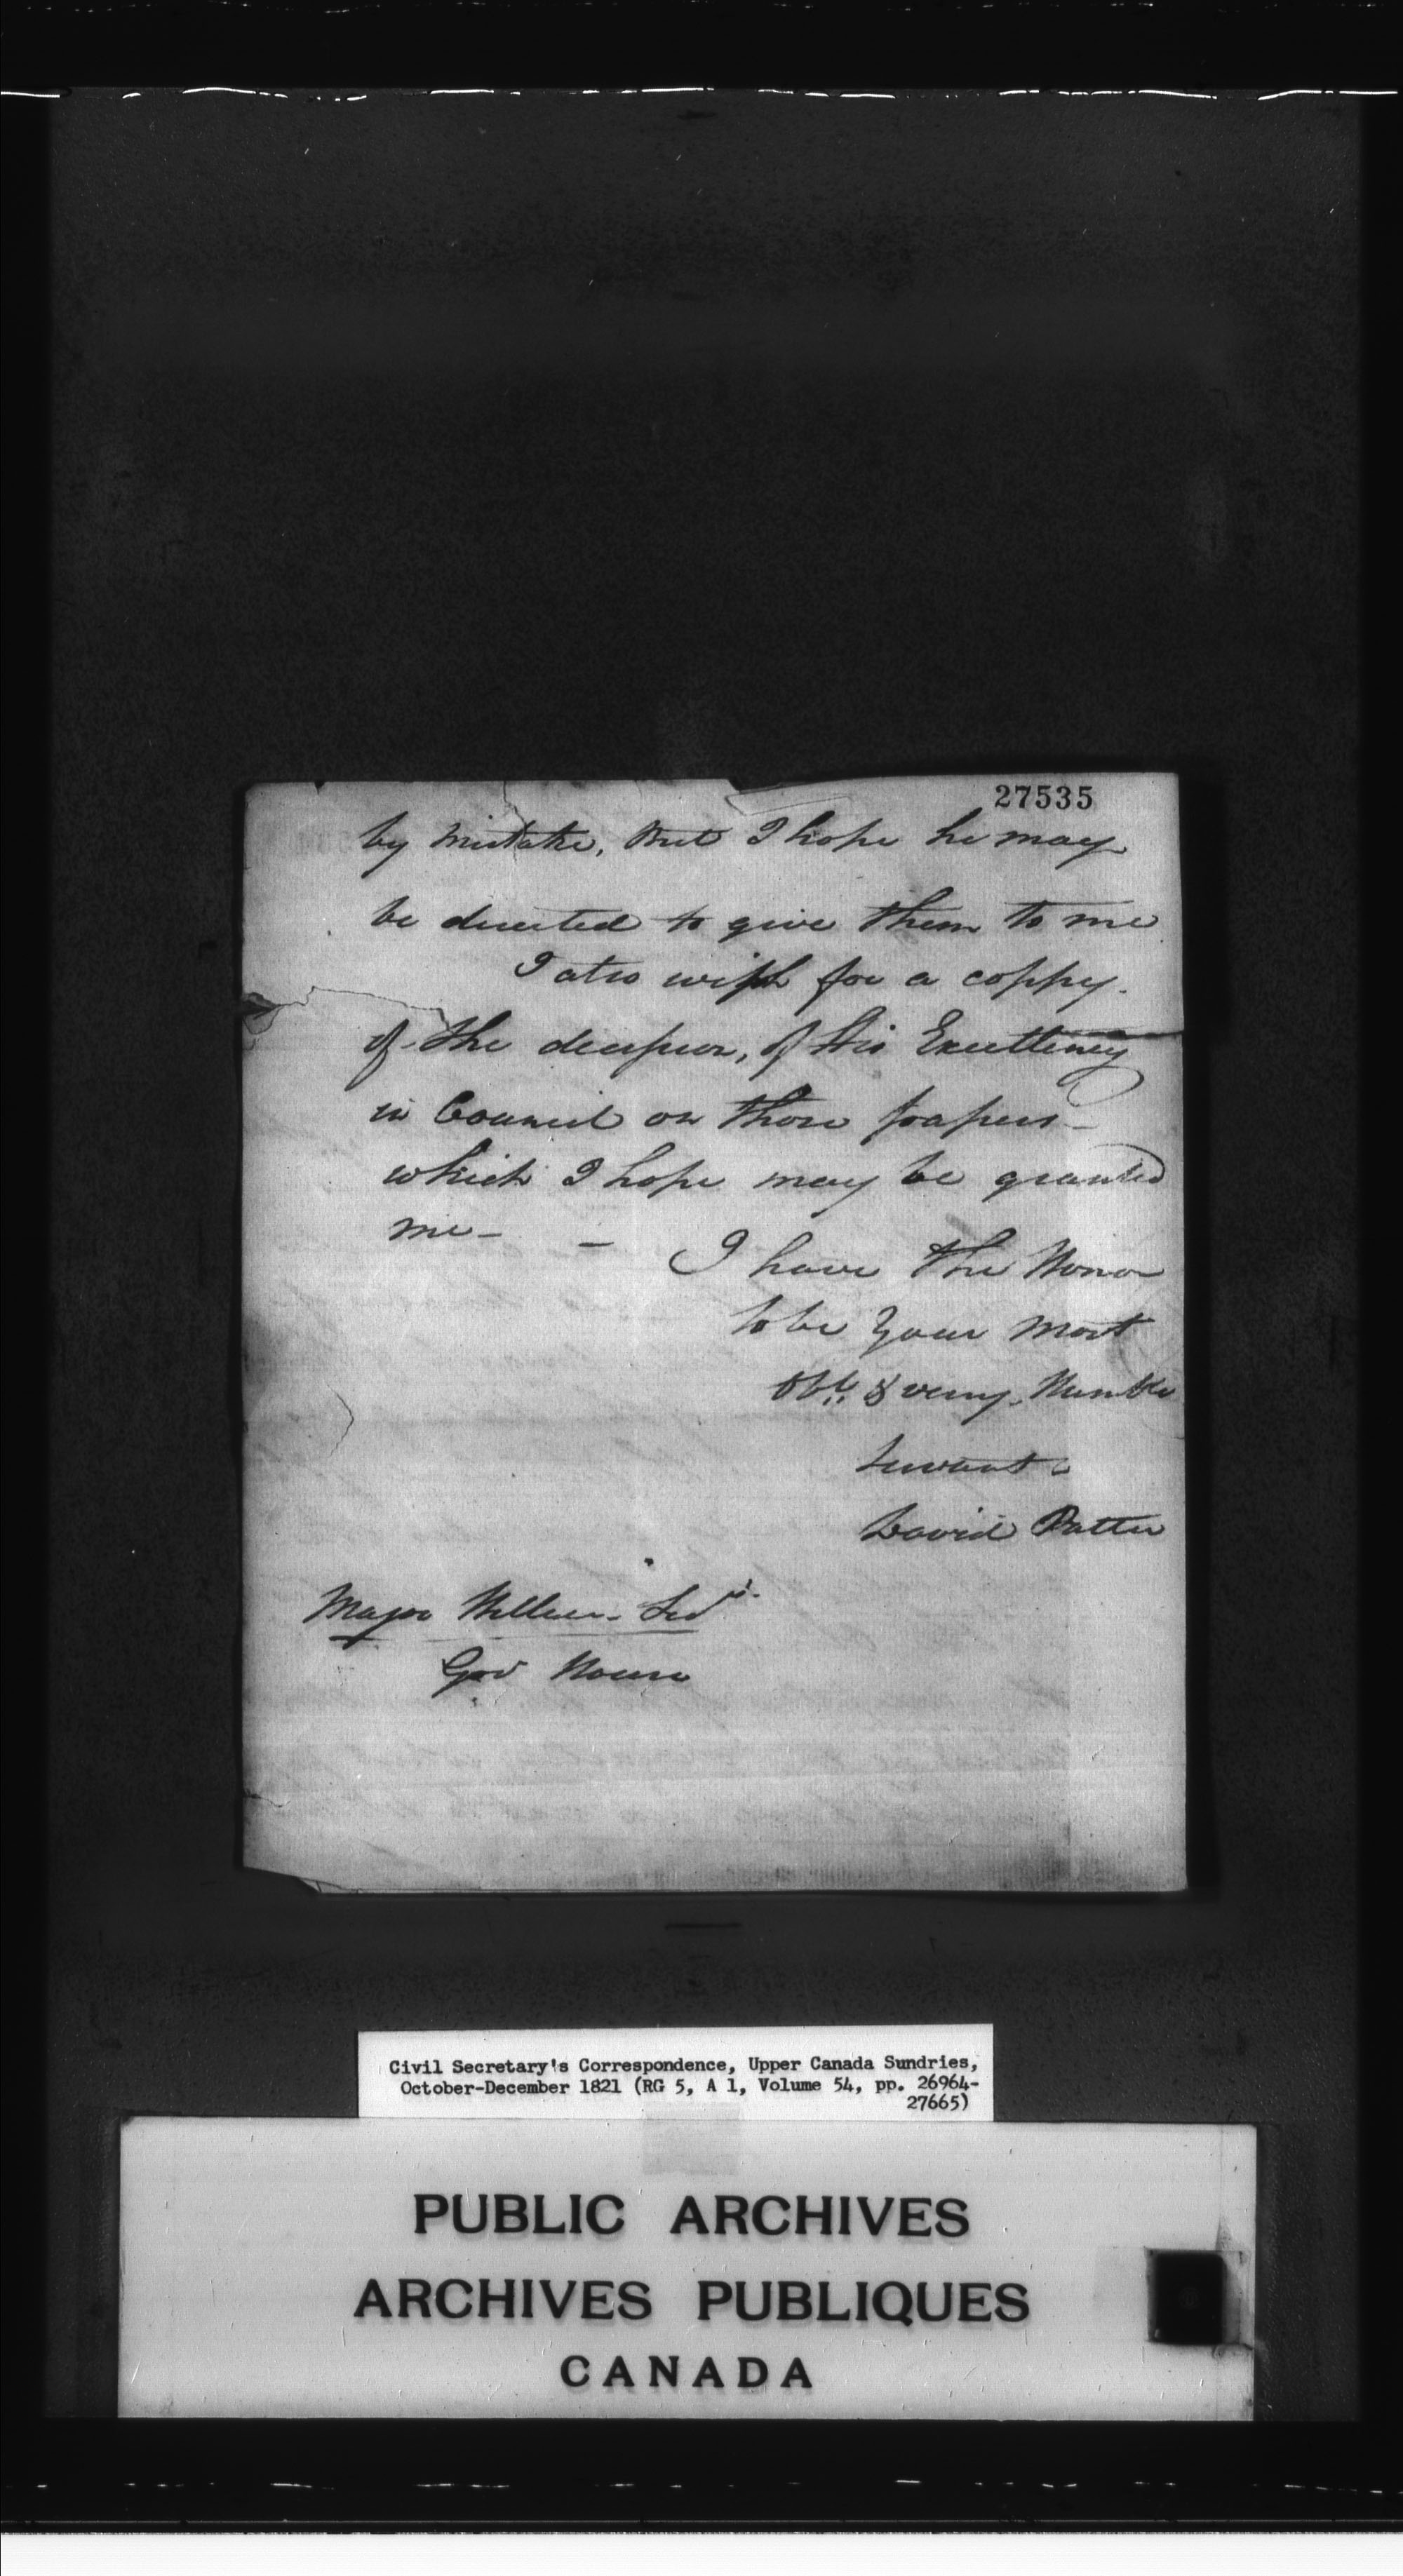 27535
by mistake, but I hope he may
be directed to give them to me
I also wish for a coppy.
of the decision, of His Excellency
in Council on those papers -
which I hope may be granted
me - -
I have the Honor
to be Your most
Obt. & very Humble
Servant
David
Major Hillier
Gov House
Civil Secretary's Correspondence, Upper Canada Sundries,
October-December 1821 (RG 5, A 1, Volume 54, pp. 26964-
27665)
PUBLIC ARCHIVES
ARCHIVES PUBLIQUES
CANADA